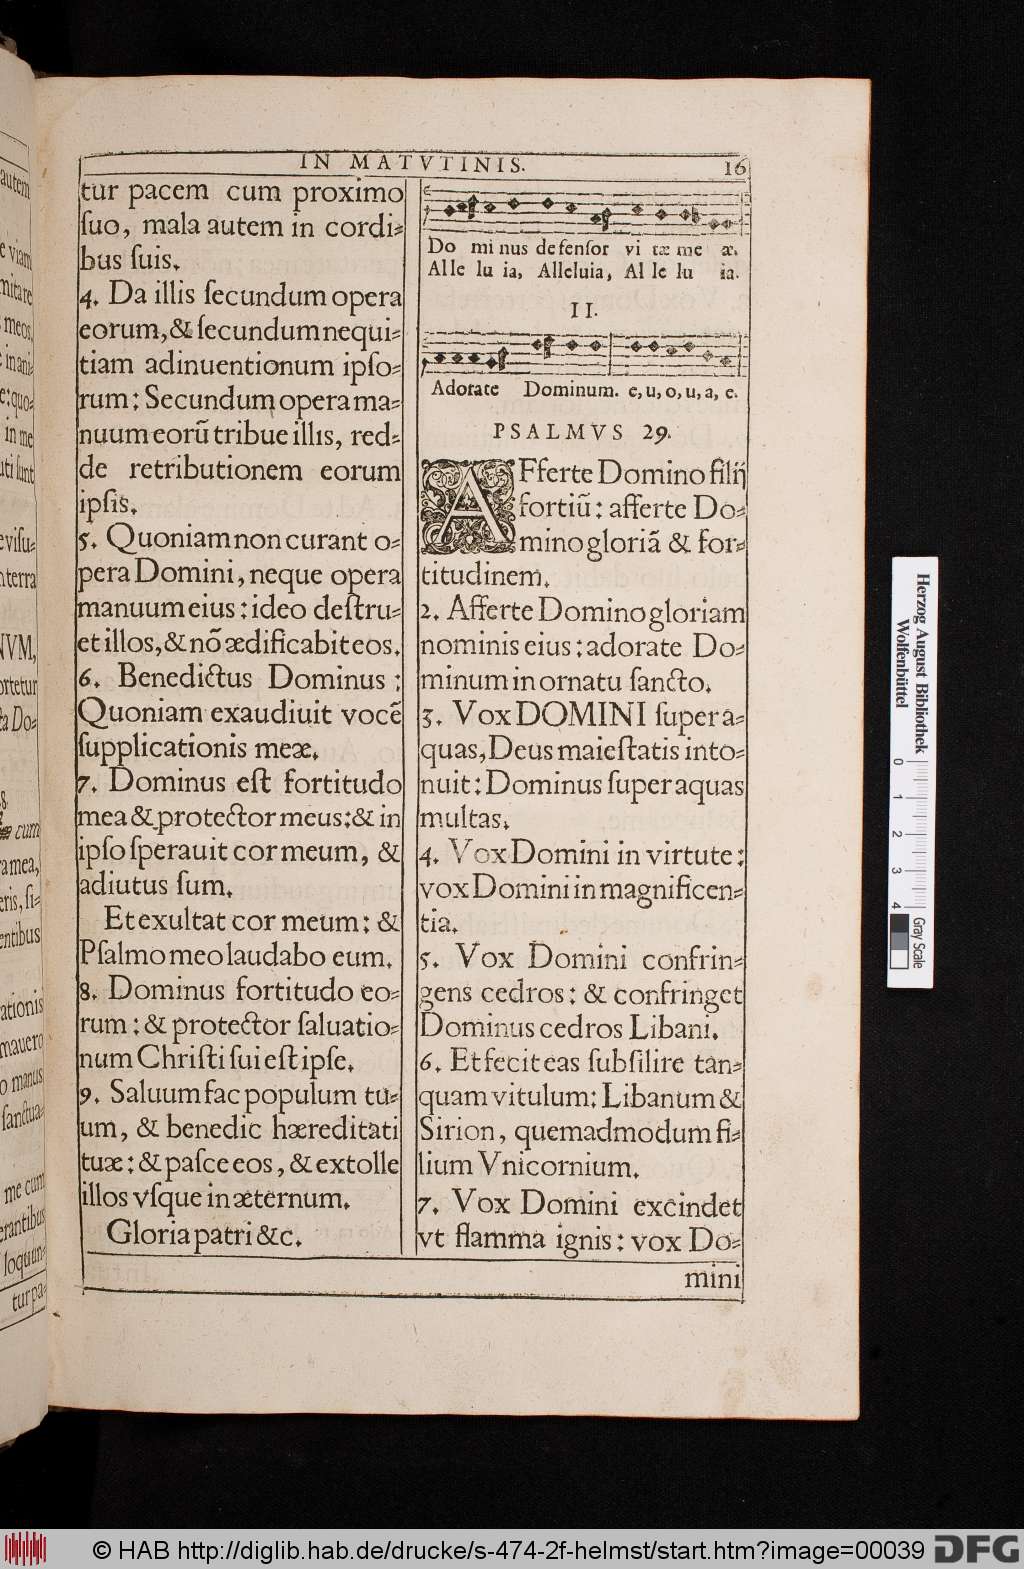 IN MATVTINIS. 16
tur pacem cum proximo
ſuo, mala autem in cordi-
bus ſuis.
4. Da illis ſecundum opera
eorum, & ſecundum nequi-
tiam adinuentionum ipſo-
rum: Secundum opera ma-
nuum eorũ tribue illis, red-
de retributionem eorum
ipſis.
5. Quoniam non curant o-
pera Domini, neque opera
manuum eius: ideo deſtru-
et illos, & nõ ædificabit eos.
6. Benedictus Dominus:
Quoniam exaudiuit vocẽ
ſupplicationis meæ.
7. Dominus eſt fortitudo
mea & protector meus: & in
ipſo ſperauit cor meum, &
adiutus ſum.
Et exultat cor meum: &
Pſalmo meo laudabo eum.
8. Dominus fortitudo eo-
rum: & protector ſaluatio-
num Chriſti ſui eſt ipſe.
9. Saluum fac populum tu-
um, & benedic hæreditati
tuæ: & paſce eos, & extolle
illos vſque in æternum.
Gloria patri &c.
Do mi nus defenſor vi tæ me æ.
Alle lu ia, Alleluia, Al le lu ia.
II.
Adorate Dominum. e, u, o, u, a, e.
PSALMVS 29.
AFferte Domino filij
fortiũ: afferte Do-
mino gloriã & for-
titudinem.
2. Afferte Domino gloriam
nominis eius: adorate Do-
minum in ornatu ſancto.
3. Vox DOMINI ſuper a-
quas, Deus maieſtatis into-
nuit: Dominus ſuper aquas
multas.
4. Vox Domini in virtute:
vox Domini in magnificen-
tia.
5. Vox Domini confrin-
gens cedros: & confringet
Dominus cedros Libani.
6. Et fecit eas ſubſilire tan-
quam vitulum: Libanum &
Sirion, quemadmodum fi-
lium Vnicornium.
7. Vox Domini excindet
vt flamma ignis: vox Do-
mini
autem
e viam
mitare
meos,
in ani-
e: quo-
in me
uti ſunt
e viſu-
n terra
NVM,
ortetur
ta Do-
s.
cum
a mea,
eris, ſi-
entibus
ationis
mauero
o manus
ſanctua-
me cum
erantibus
loquun-
tur pa-
Herzog August Bibliothek
Wolfenbüttel
0 1 2 3 4
Gray Scale
© HAB http://diglib.hab.de/drucke/s-474-2f-helmst/start.htm?image=00039
DFG